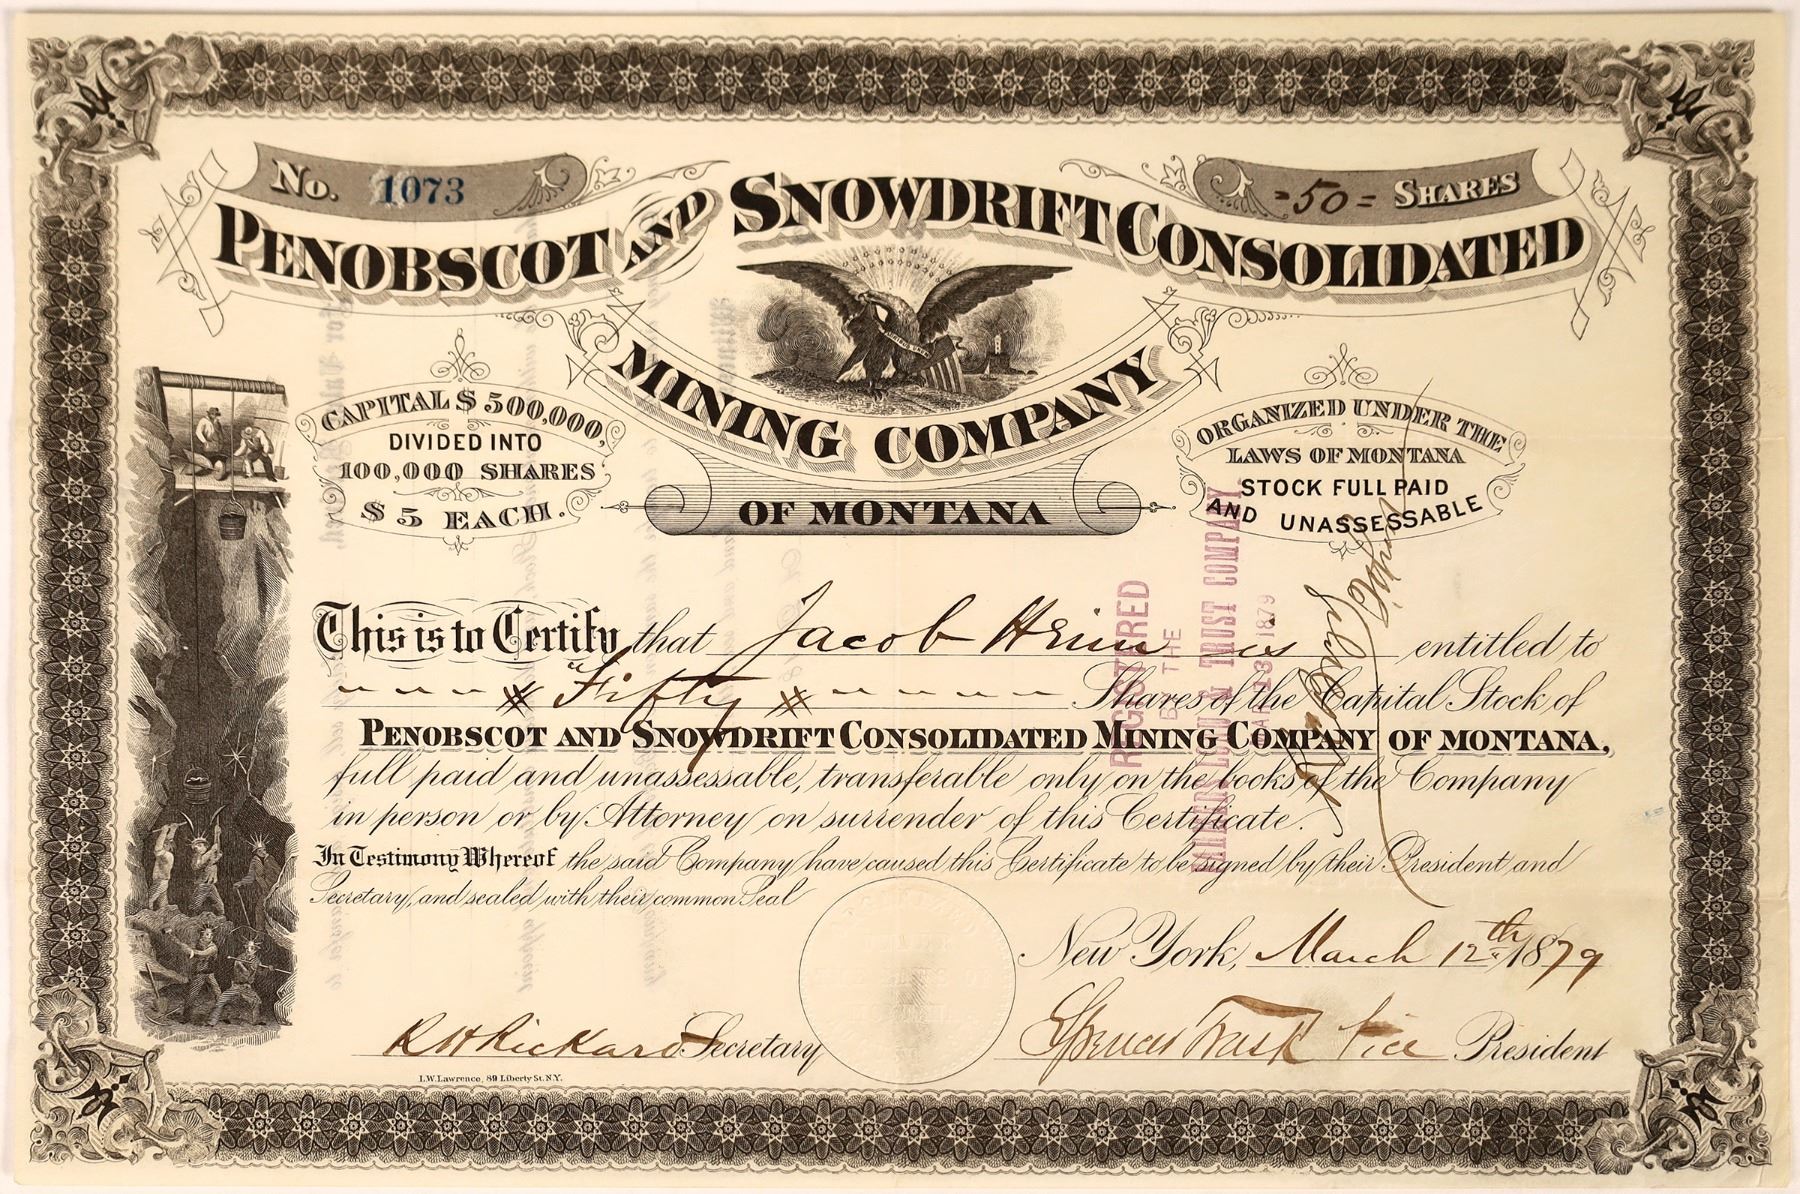 No. 1073
-50= SHARES
PENOBSCOT AND SNOWDRIFT CONSOLIDATED
MINING COMPANY
OF MONTANA
CAPITAL $500,000,
DIVIDED INTO
100,000 SHARES
$5 EACH.
ORGANIZED UNDER THE
LAWS OF MONTANA
STOCK FULL PAID
AND UNASSESSABLE
This is to Certify that Jacob is entitled to
Fifty Shares of the Capital Stock of
PENOBSCOT AND SNOWDRIFT CONSOLIDATED MINING COMPANY OF MONTANA,
full paid and unassessable, transferable only on the books of the Company
in person or by Attorney on surrender of this Certificate.
In Testimony Whereof the said Company have caused this Certificate to be signed by their President and
Secretary, and sealed with their common Seal
New York, March 12th 1879
R H Rickard Secretary
Vice President
L.W. Lawrence, 89 Liberty St. N.Y.
REGISTERED
BY THE
TRUST COMPANY
1879